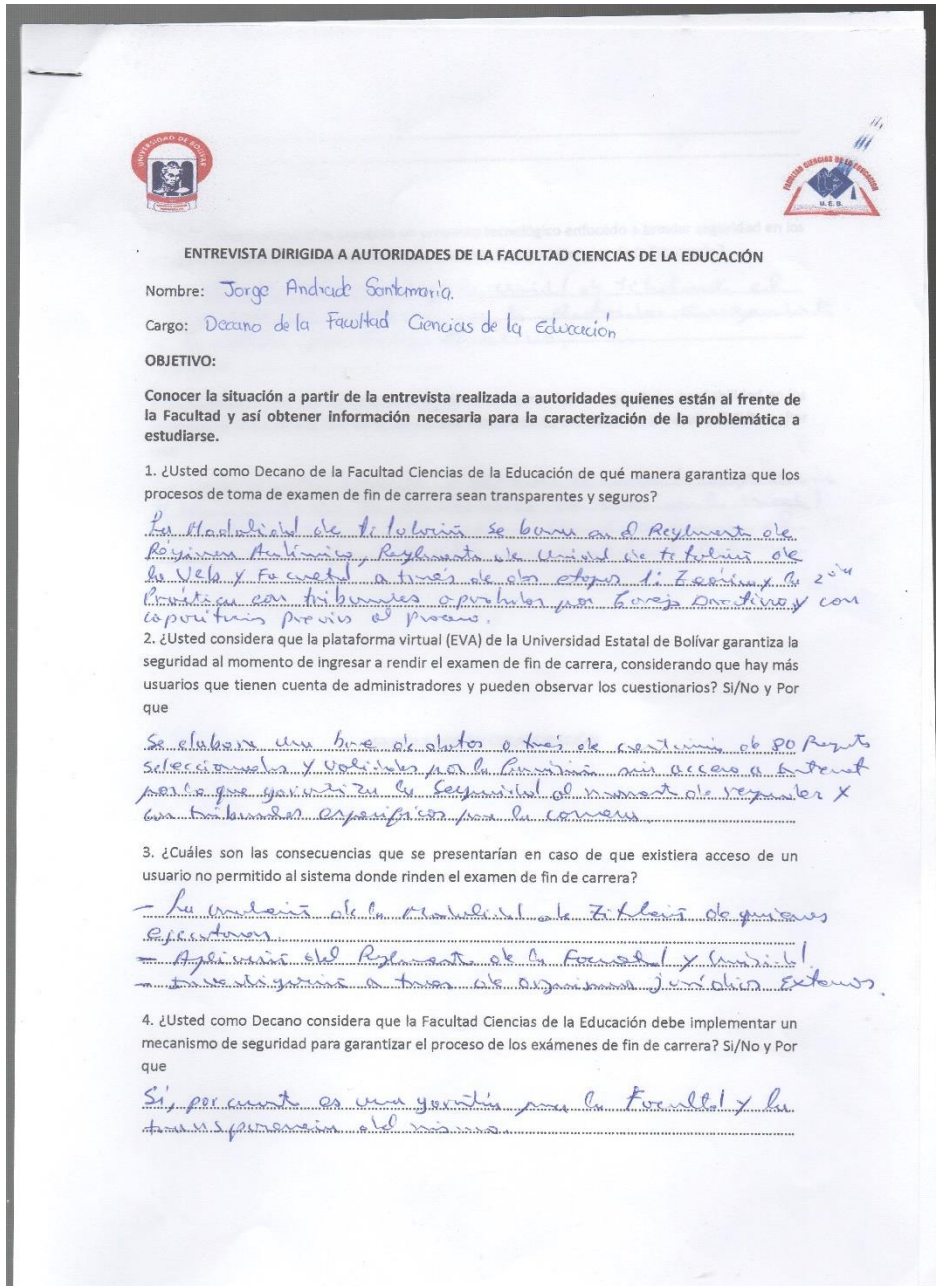 UNIVERSIDAD DE BOLIVAR
FACULTAD CIENCIAS DE LA EDUCACION
U.E.B.
ENTREVISTA DIRIGIDA A AUTORIDADES DE LA FACULTAD CIENCIAS DE LA EDUCACIÓN
Nombre: Jorge Andrade Santamaría.
Cargo: Decano de la Facultad Ciencias de la Educación
OBJETIVO:
Conocer la situación a partir de la entrevista realizada a autoridades quienes están al frente de
la Facultad y así obtener información necesaria para la caracterización de la problemática a
estudiarse.
1. ¿Usted como Decano de la Facultad Ciencias de la Educación de qué manera garantiza que los
procesos de toma de examen de fin de carrera sean transparentes y seguros?
La Modalidad de Titulación se basa en el Reglamento de
Régimen Académico, Reglamento de Unidad de titulación de
la Ueb y Facultad a través de dos etapas 1: Teórica y la 2da
Práctica con tribunales aprobados por Consejo Directivo y con
previos al proceso.
2. ¿Usted considera que la plataforma virtual (EVA) de la Universidad Estatal de Bolívar garantiza la
seguridad al momento de ingresar a rendir el examen de fin de carrera, considerando que hay más
usuarios que tienen cuenta de administradores y pueden observar los cuestionarios? Si/No y Por
que
Se elabora una base de datos a través de de 80
seleccionadas y validadas por la Comisión sin acceso a internet
por lo que garantiza la seguridad al momento de responder y
con tribunales específicos por la carrera.
3. ¿Cuáles son las consecuencias que se presentarían en caso de que existiera acceso de un
usuario no permitido al sistema donde rinden el examen de fin de carrera?
- La de la Modalidad de Titulación de quienes
ejecutaron.
- Aplicación del Reglamento de la Facultad y Unidad.
- Investigación a través de organismos jurídicos Externos.
4. ¿Usted como Decano considera que la Facultad Ciencias de la Educación debe implementar un
mecanismo de seguridad para garantizar el proceso de los exámenes de fin de carrera? Si/No y Por
que
Sí, por cuanto es una garantía para la Facultad y la
transparencia del mismo.